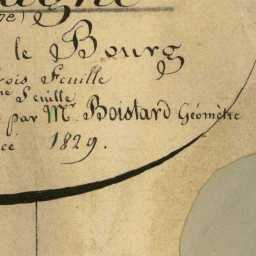 ge)
le Bourg
rois Feuille
me Feuille
par Mr. Boistard Géomètre
cé 1829.